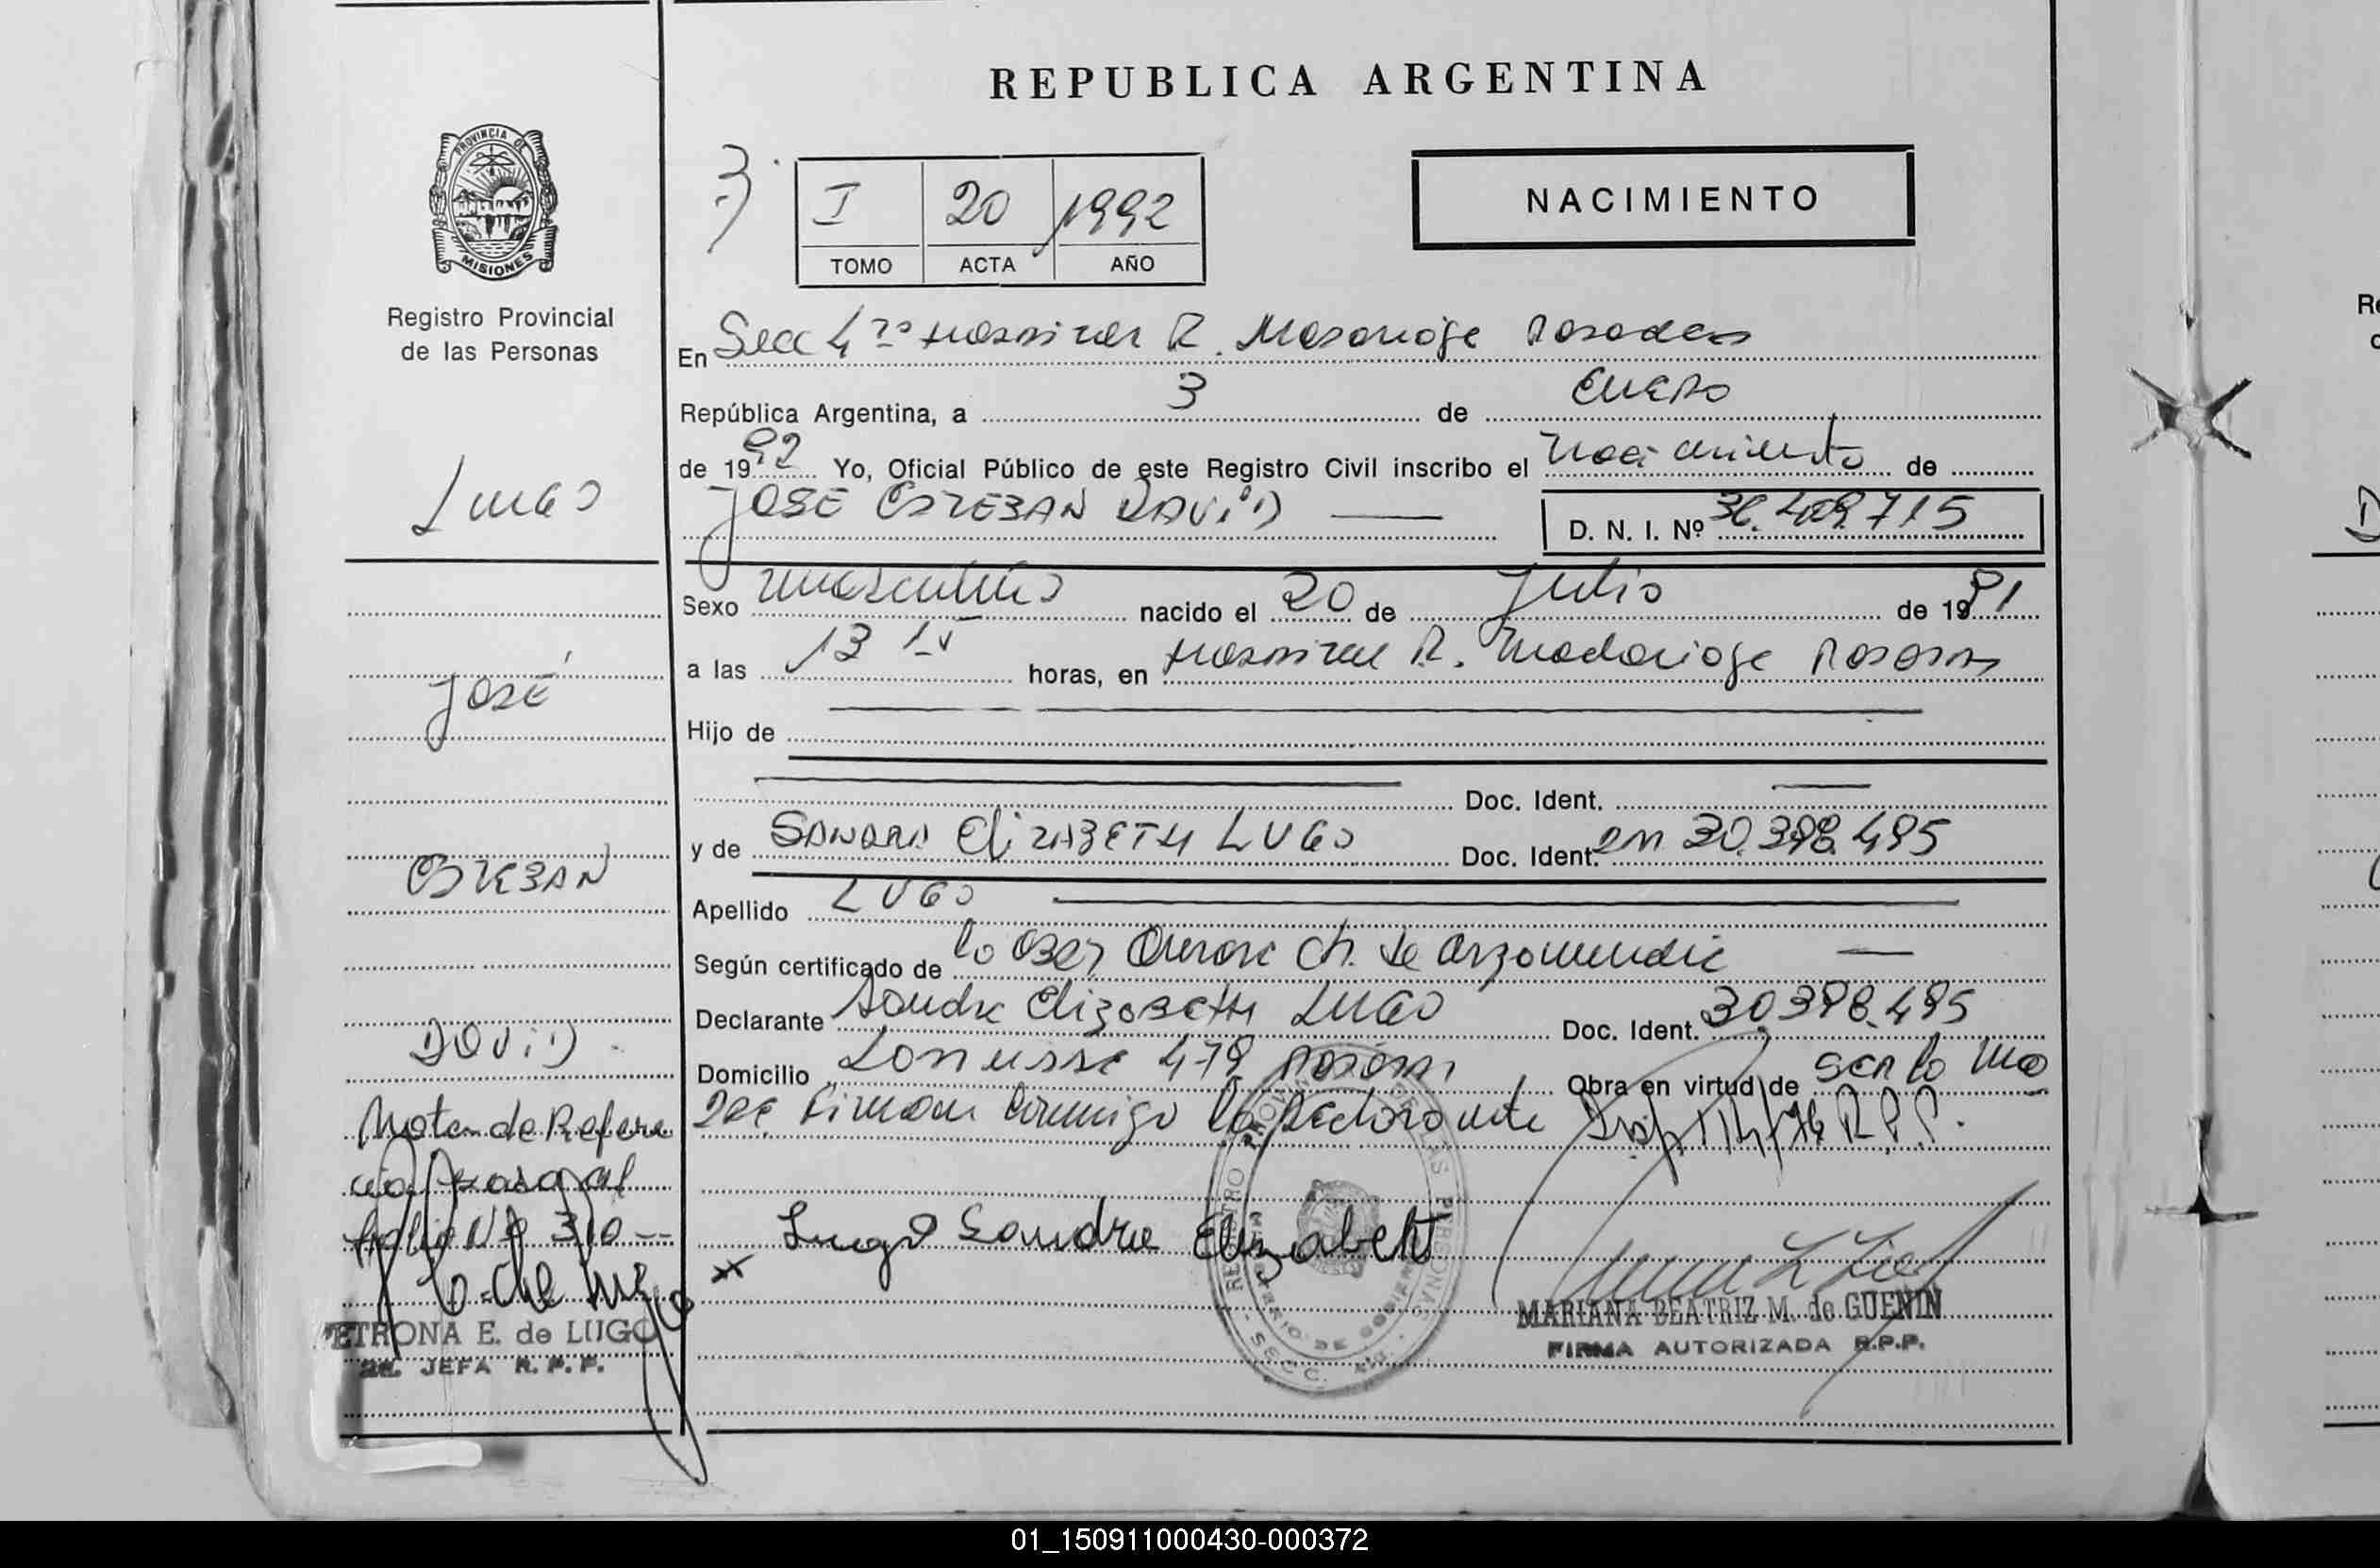 REPUBLICA ARGENTINA
PROVINCIA DE
MISIONES
Registro Provincial
de las Personas
3
I 20 1992
TOMO ACTA AÑO
NACIMIENTO
En Secc 4ta Hospital R. Madariaga Posadas
República Argentina, a 3 de Enero
de 1992 Yo, Oficial Público de este Registro Civil inscribo el Nacimiento de
JOSE ESTEBAN DAVID D. N. I. Nº 36.409.715
Sexo masculino nacido el 20 de Julio de 1991
a las 13 15 horas, en Hospital R. Madariaga Posadas
Hijo de
Doc. Ident.
y de SANDRA ELIZABETH LUGO Doc. Ident. 30.398.495
Apellido LUGO
Según certificado de la Obst. Ch. de Arzamendia
Declarante Sandra Elizabeth LUGO Doc. Ident. 30.398.495
Domicilio Lanusse 478 Posadas Obra en virtud de ser la ma
dre. Firman conmigo la declarante Disp. 114/76 R.P.P.
Lugo Sandra Elizabeth
MARIANA BEATRIZ M. de GUENIN
FIRMA AUTORIZADA R.P.P.
LUGO
JOSÉ
ESTEBAN
DAVID
Nota de Referen
cia
folio Nº 310
PETRONA E. de LUGO
JEFA R. P. P.
01_150911000430-000372